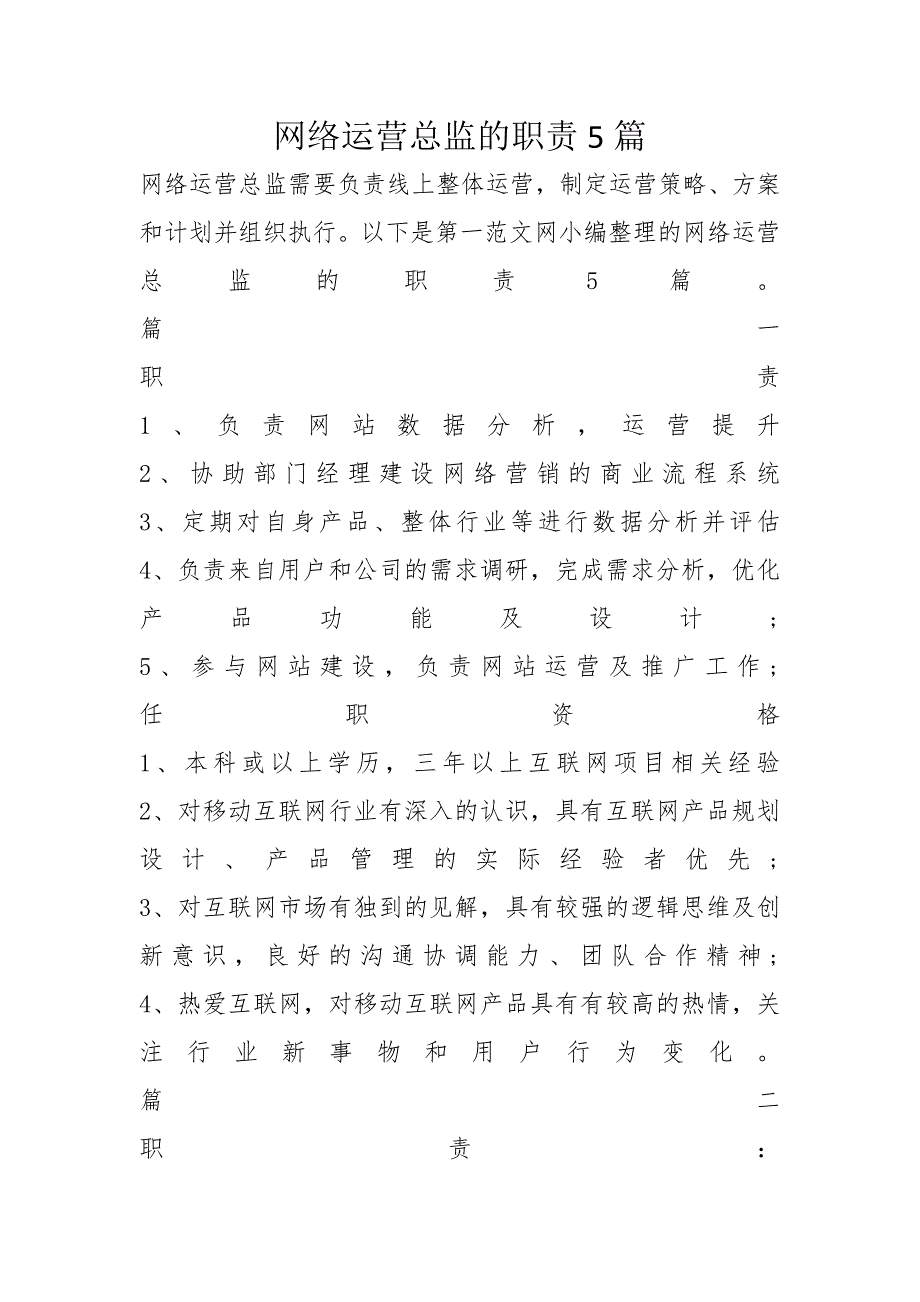 网络运营总监的职责5篇
网络运营总监需要负责线上整体运营，制定运营策略、方案
和计划并组织执行。以下是第一范文网小编整理的网络运营
总监的职责5篇。
篇一
职责
1、负责网站数据分析，运营提升
2、协助部门经理建设网络营销的商业流程系统
3、定期对自身产品、整体行业等进行数据分析并评估
4、负责来自用户和公司的需求调研，完成需求分析，优化
产品功能及设计;
5、参与网站建设，负责网站运营及推广工作;
任职资格
1、本科或以上学历，三年以上互联网项目相关经验
2、对移动互联网行业有深入的认识，具有互联网产品规划
设计、产品管理的实际经验者优先;
3、对互联网市场有独到的见解，具有较强的逻辑思维及创
新意识，良好的沟通协调能力、团队合作精神;
4、热爱互联网，对移动互联网产品具有有较高的热情，关
注行业新事物和用户行为变化。
篇二
职责：